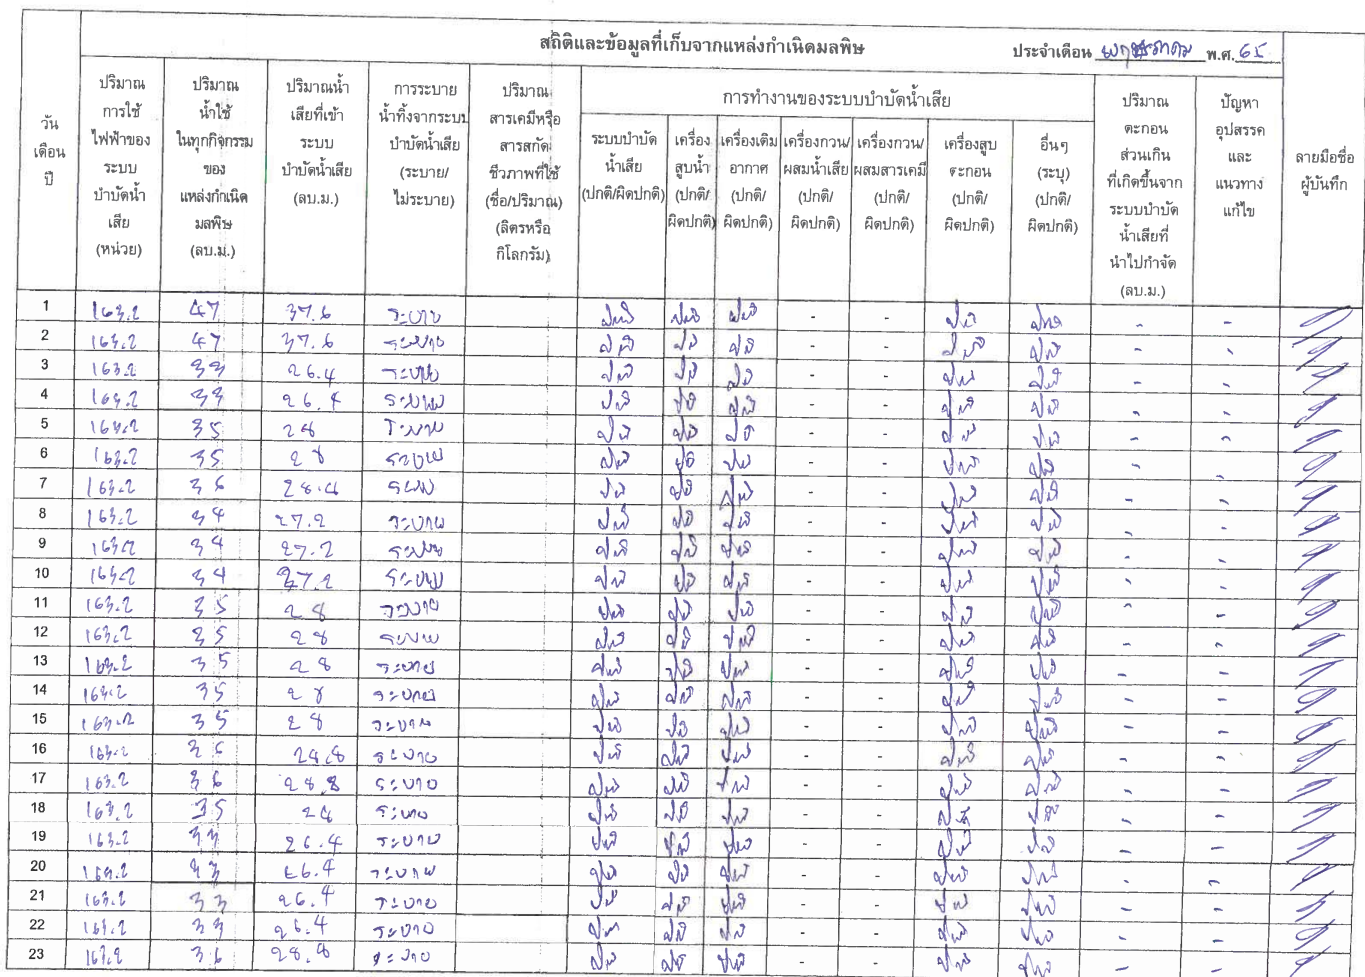 สถิติและข้อมูลที่เก็บจากแหล่งกำเนิดมลพิษ ประจำเดือน พฤษภาคม พ.ศ. 65
วัน เดือน ปี
ปริมาณ การใช้ ไฟฟ้าของ ระบบ บำบัดน้ำ เสีย (หน่วย)
ปริมาณ น้ำใช้ ในทุกกิจกรรม ของ แหล่งกำเนิด มลพิษ (ลบ.ม.)
ปริมาณน้ำ เสียที่เข้า ระบบ บำบัดน้ำเสีย (ลบ.ม.)
การระบาย น้ำทิ้งจากระบบ บำบัดน้ำเสีย (ระบาย/ ไม่ระบาย)
ปริมาณ สารเคมีหรือ สารสกัด ชีวภาพที่ใช้ (ชื่อ/ปริมาณ) (ลิตรหรือ กิโลกรัม)
การทำงานของระบบบำบัดน้ำเสีย
ระบบบำบัด น้ำเสีย (ปกติ/ผิดปกติ)
เครื่อง สูบน้ำ (ปกติ/ ผิดปกติ)
เครื่องเติม อากาศ (ปกติ/ ผิดปกติ)
เครื่องกวน/ ผสมน้ำเสีย (ปกติ/ ผิดปกติ)
เครื่องกวน/ ผสมสารเคมี (ปกติ/ ผิดปกติ)
เครื่องสูบ ตะกอน (ปกติ/ ผิดปกติ)
อื่นๆ (ระบุ) (ปกติ/ ผิดปกติ)
ปริมาณ ตะกอน ส่วนเกิน ที่เกิดขึ้นจาก ระบบบำบัด น้ำเสียที่ นำไปกำจัด (ลบ.ม.)
ปัญหา อุปสรรค และ แนวทาง แก้ไข
ลายมือชื่อ ผู้บันทึก
1 163.2 47 37.6 ระบาย ปกติ ปกติ ปกติ - - ปกติ ปกติ - -
2 163.2 47 37.6 ระบาย ปกติ ปกติ ปกติ - - ปกติ ปกติ - -
3 163.2 33 26.4 ระบาย ปกติ ปกติ ปกติ - - ปกติ ปกติ - -
4 163.2 33 26.4 ระบาย ปกติ ปกติ ปกติ - - ปกติ ปกติ - -
5 163.2 35 28 ระบาย ปกติ ปกติ ปกติ - - ปกติ ปกติ - -
6 163.2 35 28 ระบาย ปกติ ปกติ ปกติ - - ปกติ ปกติ - -
7 163.2 36 ระบาย ปกติ ปกติ ปกติ - - ปกติ ปกติ - -
8 163.2 34 27.2 ระบาย ปกติ ปกติ ปกติ - - ปกติ ปกติ - -
9 163.2 34 27.2 ระบาย ปกติ ปกติ ปกติ - - ปกติ ปกติ - -
10 163.2 34 27.2 ระบาย ปกติ ปกติ ปกติ - - ปกติ ปกติ - -
11 163.2 35 28 ระบาย ปกติ ปกติ ปกติ - - ปกติ ปกติ - -
12 163.2 35 28 ระบาย ปกติ ปกติ ปกติ - - ปกติ ปกติ - -
13 163.2 35 28 ระบาย ปกติ ปกติ ปกติ - - ปกติ ปกติ - -
14 163.2 35 28 ระบาย ปกติ ปกติ ปกติ - - ปกติ ปกติ - -
15 163.2 35 28 ระบาย ปกติ ปกติ ปกติ - - ปกติ ปกติ - -
16 163.2 ระบาย ปกติ ปกติ ปกติ - - ปกติ ปกติ - -
17 163.2 36 28.8 ระบาย ปกติ ปกติ ปกติ - - ปกติ ปกติ - -
18 163.2 35 28 ระบาย ปกติ ปกติ ปกติ - - ปกติ ปกติ - -
19 163.2 33 26.4 ระบาย ปกติ ปกติ ปกติ - - ปกติ ปกติ - -
20 163.2 33 26.4 ระบาย ปกติ ปกติ ปกติ - - ปกติ ปกติ - -
21 163.2 33 26.4 ระบาย ปกติ ปกติ ปกติ - - ปกติ ปกติ - -
22 163.2 33 26.4 ระบาย ปกติ ปกติ ปกติ - - ปกติ ปกติ - -
23 163.2 36 28.8 ระบาย ปกติ ปกติ ปกติ - - ปกติ ปกติ - -